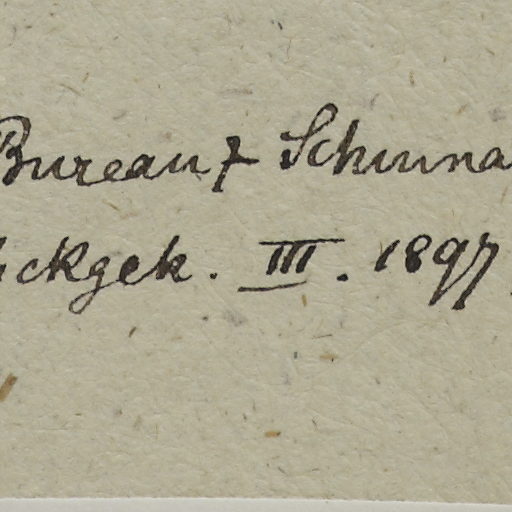 Bureau & Schinna
ckgek. III. 1897.